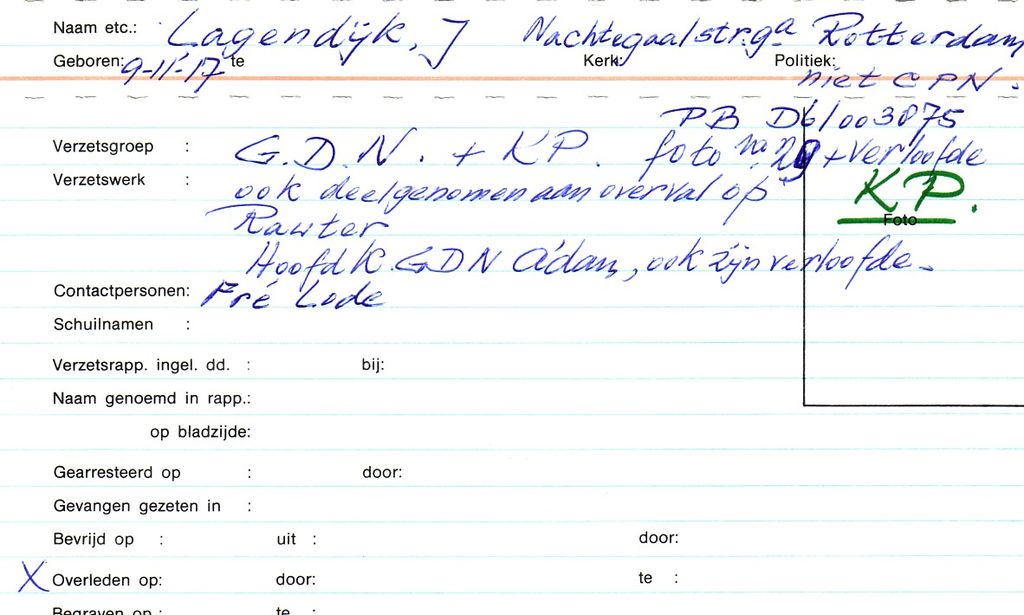 Naam etc.: Lagendijk, J Nachtegaalstr. 9a Rotterdam
Geboren: 9-11-17 te Kerk: Politiek:
niet CPN.
PB D6/003875
Verzetsgroep : G.D.N. + KP. foto + verloofde
Verzetswerk : ook deelgenomen aan overval op
KP.
Foto
Rauter
Hoofd K. GDN A'dam, ook zijn verloofde
Contactpersonen: Fré Lode
Schuilnamen :
Verzetsrapp. ingel. dd. : bij:
Naam genoemd in rapp.:
op bladzijde:
Gearresteerd op : door:
Gevangen gezeten in :
Bevrijd op : uit : door:
X Overleden op: door: te :
Begraven op : te :